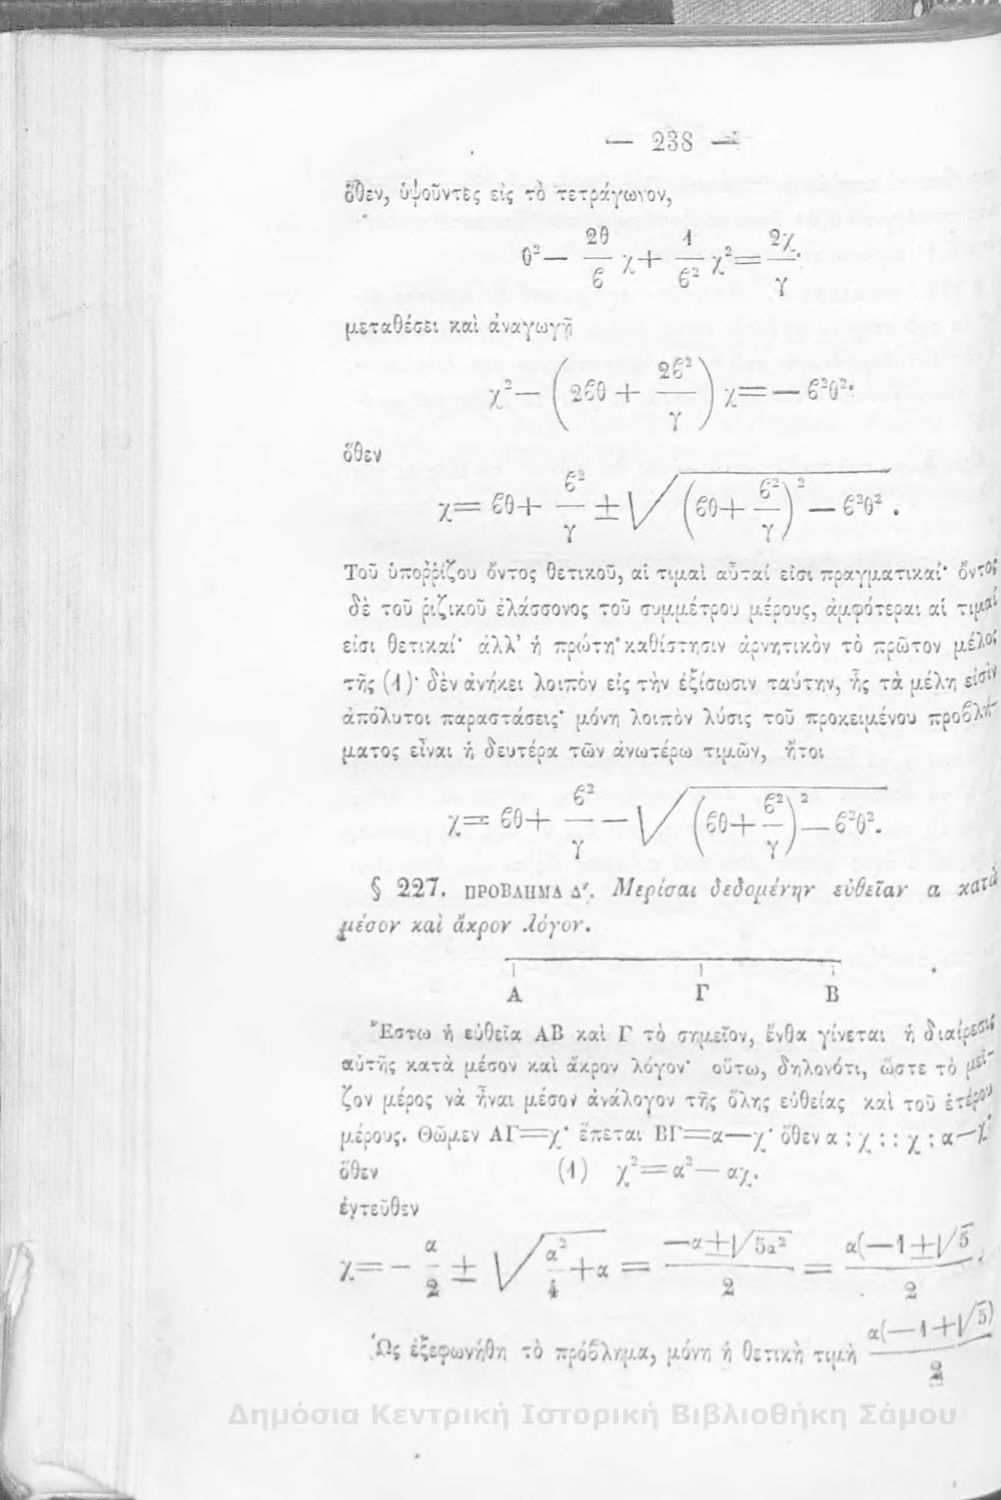 — 238 —
ὅθεν, ὑψοῦντες εἰς τὸ τετράγωνον,
θ²— 2θ/β χ + 1/β² χ² = 2χ/γ·
μεταθέσει καὶ ἀναγωγῇ
χ²— (2βθ + 2β²/γ) χ = — β²θ²·
ὅθεν
χ = βθ + β²/γ ± √(βθ + β²/γ)² — β²θ².
Τοῦ ὑποῤῥίζου ὄντος θετικοῦ, αἱ τιμαὶ αὗταί εἰσι πραγματικαί· ὄντος
δὲ τοῦ ῥιζικοῦ ἐλάσσονος τοῦ συμμέτρου μέρους, ἀμφότεραι αἱ τιμαί
εἰσι θετικαί· ἀλλ’ ἡ πρώτη καθίστησιν ἀρνητικὸν τὸ πρῶτον μέλος
τῆς (1)· δὲν ἀνήκει λοιπὸν εἰς τὴν ἐξίσωσιν ταύτην, ἧς τὰ μέλη εἰσὶν
ἀπόλυτοι παραστάσεις· μόνη λοιπὸν λύσις τοῦ προκειμένου προβλή-
ματος εἶναι ἡ δευτέρα τῶν ἀνωτέρω τιμῶν, ἤτοι
χ = βθ + β²/γ — √(βθ + β²/γ)² — β²θ².
§ 227. ΠΡΟΒΛΗΜΑ Δ΄. Μερίσαι δεδομένην εὐθεῖαν α κατὰ
μέσον καὶ ἄκρον λόγον.
Α Γ Β
Ἔστω ἡ εὐθεῖα ΑΒ καὶ Γ τὸ σημεῖον, ἔνθα γίνεται ἡ διαίρεσις
αὐτῆς κατὰ μέσον καὶ ἄκρον λόγον· οὕτω, δηλονότι, ὥστε τὸ μεῖ-
ζον μέρος νὰ ἦναι μέσον ἀνάλογον τῆς ὅλης εὐθείας καὶ τοῦ ἑτέρου
μέρους. Θῶμεν ΑΓ=χ· ἕπεται ΒΓ=α—χ· ὅθεν α : χ : : χ : α—χ·
ὅθεν (1) χ² = α² — αχ.
ἐντεῦθεν
χ = — α/2 ± √α²/4 + α = —α±√5α²/2 = α(—1±√5/2.
Ὡς ἐξεφωνήθη τὸ πρόβλημα, μόνη ἡ θετικὴ τιμὴ α(—1+√5)/2
Δημόσια Κεντρική Ιστορική Βιβλιοθήκη Σάμου